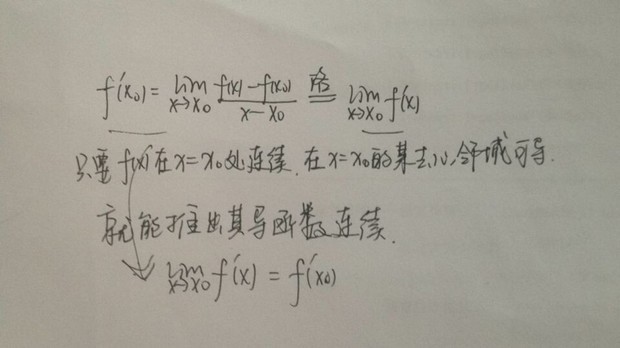 f'(x₀) = lim x→x₀ (f(x) - f(x₀))/(x - x₀) 洛= lim x→x₀ f'(x)
只要 f(x) 在 x=x₀ 处连续. 在 x=x₀ 的某去心邻域可导.
就能推出其导函数连续.
lim x→x₀ f'(x) = f'(x₀)